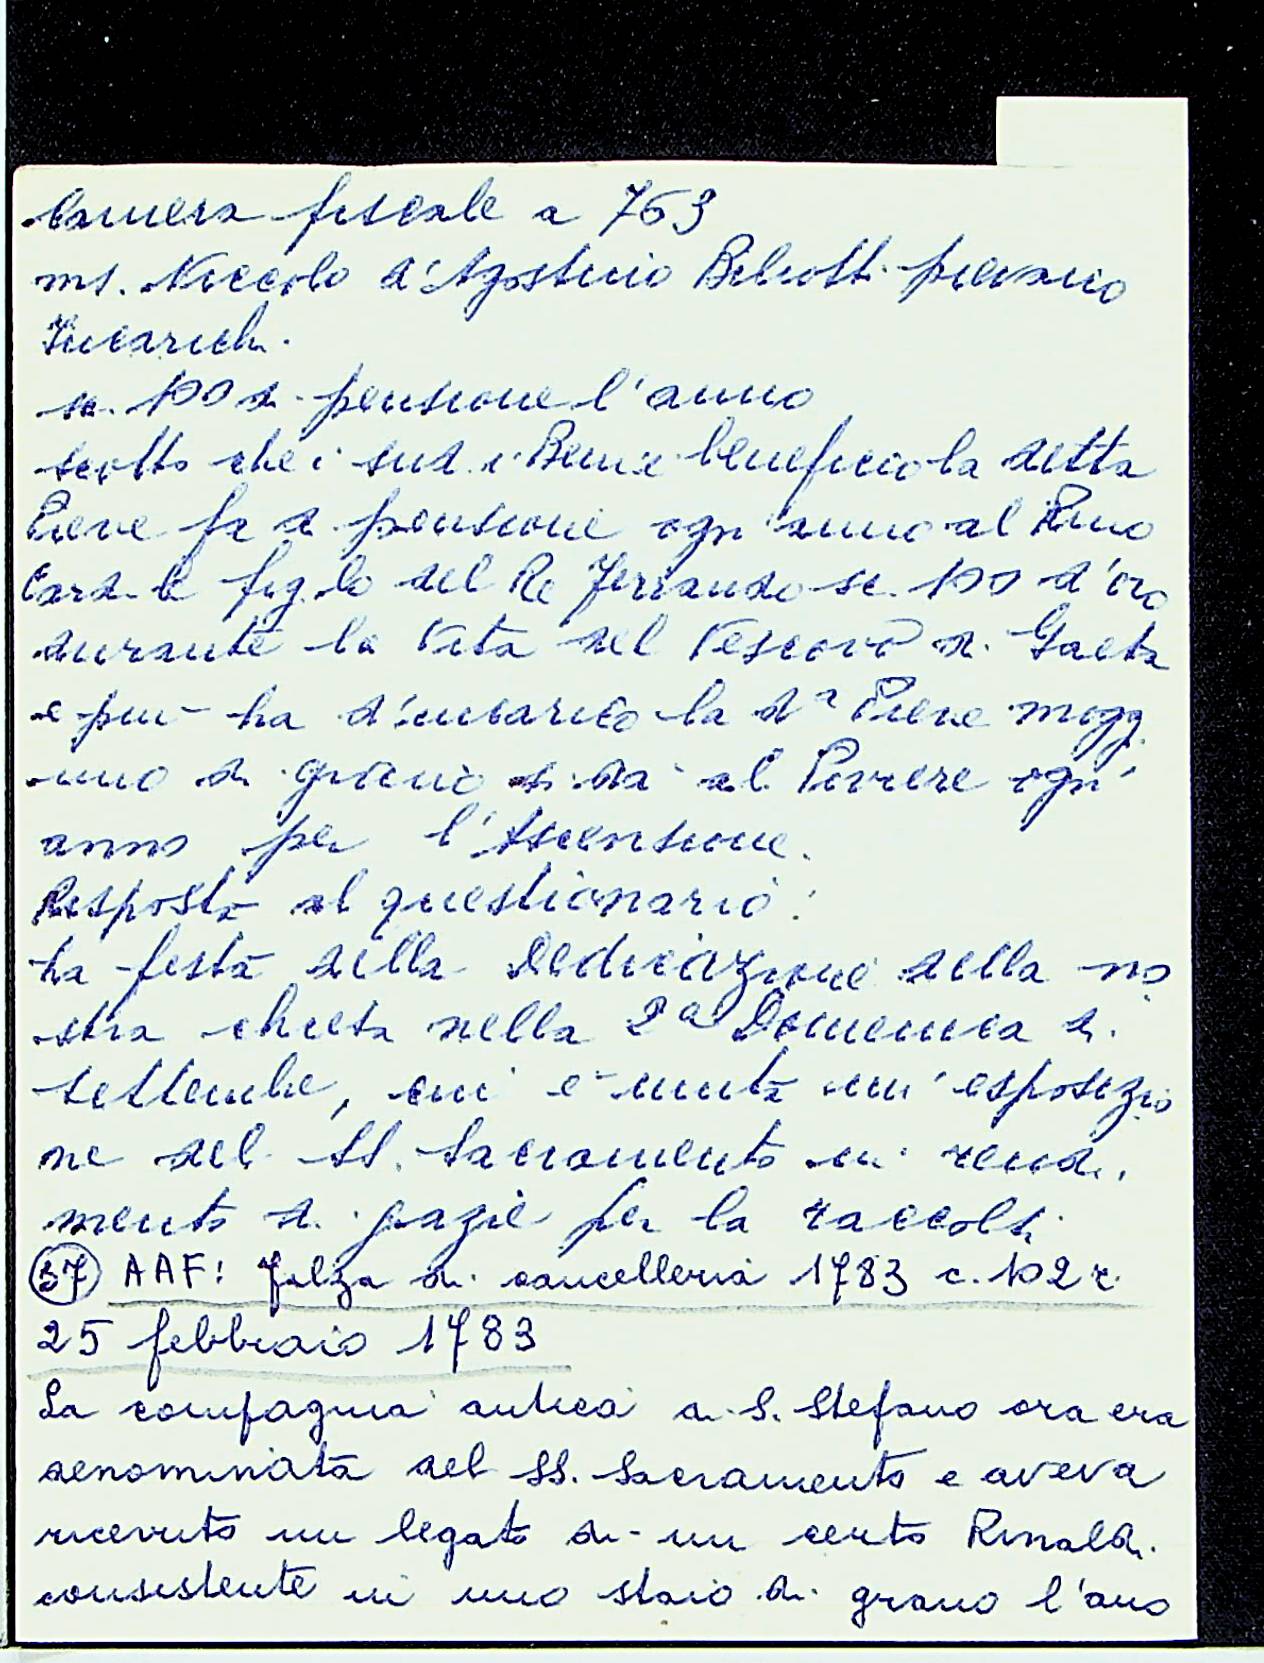 Camera fiscale a 763
ms. Niccolo d'Agostino Beliotti pievano
Incarichi.
sc. 100 di pensione l'anno
scritto che i sud.i Beni e beneficio la detta
Pieve fa di pensione ogn'anno al R.mo
Card.le figlo del Re Ferrando sc. 100 d'oro
durante la Vita del Vescovo di Gaeta
e piu ha d'incarico la d.a Pieve mogg.
uno di grano si dà al Piviere ogni
anno per l'Ascensione.
Risposta al questionario:
La festa della Dedicazione della no
stra chiesa nella 2a Domenica di
settembre, cui è unita un'esposizio
ne del SS. Sacramento in rendi
mento di grazie per la raccolta
(37) AAF: Filza di cancelleria 1783 c. 102 r.
25 febbraio 1783
La compagnia antica di S. Stefano ora era
denominata del SS. Sacramento e aveva
ricevuto un legato di un certo Rinaldi
consistente in uno staio di grano l'ano